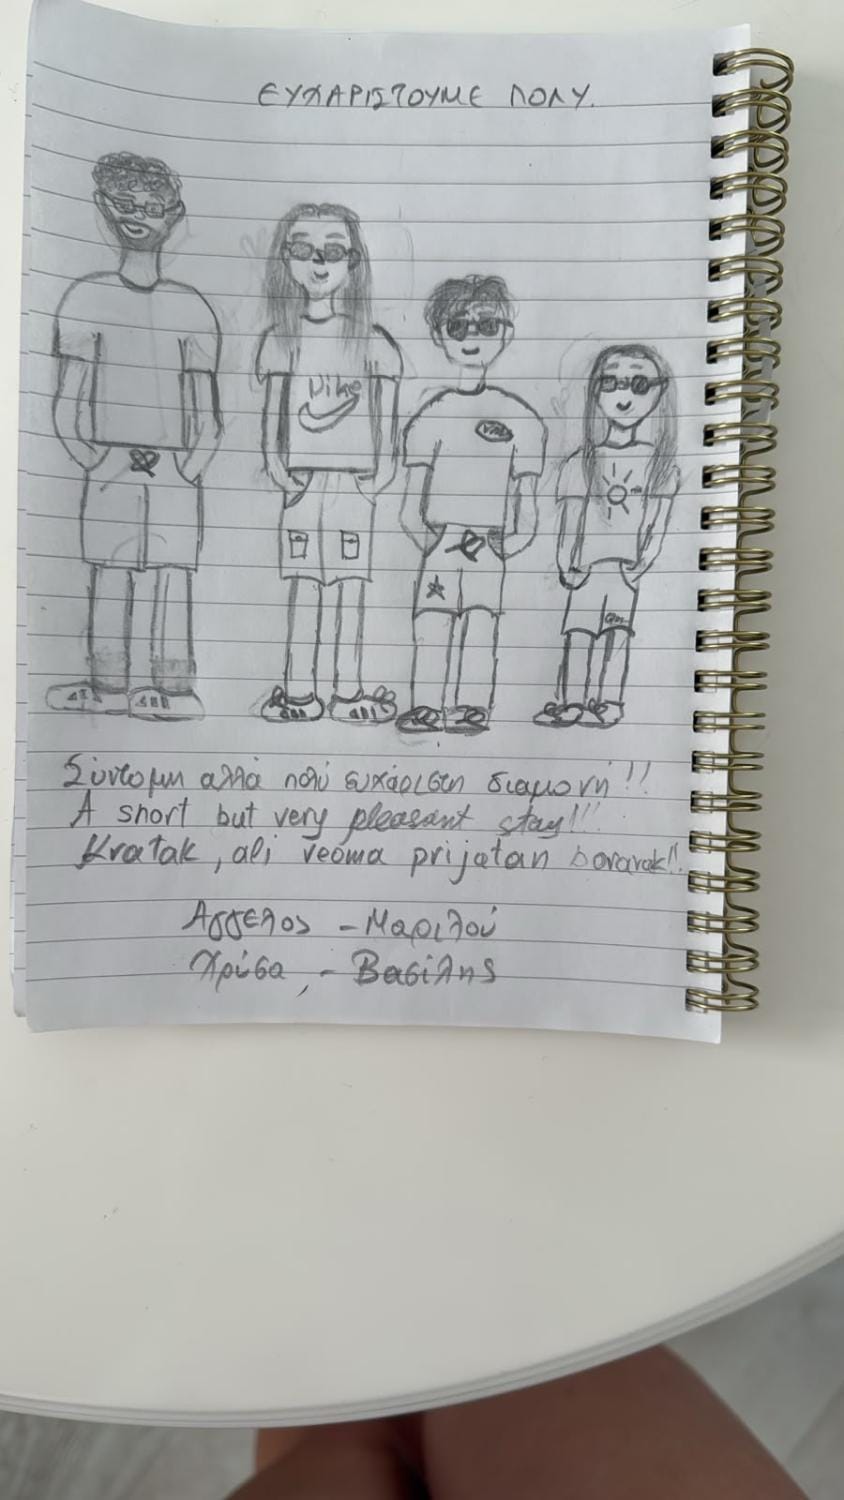 ΕΥΧΑΡΙΣΤΟΥΜΕ ΠΟΛΥ.
Nike
Σύντομη αλλά πολύ ευχάριστη διαμονή!!
A short but very pleasant stay!!!
Kratak, ali veoma prijatan boravak!!
Αγγελος - Μαριλού
Χρύσα, - Βασίλης